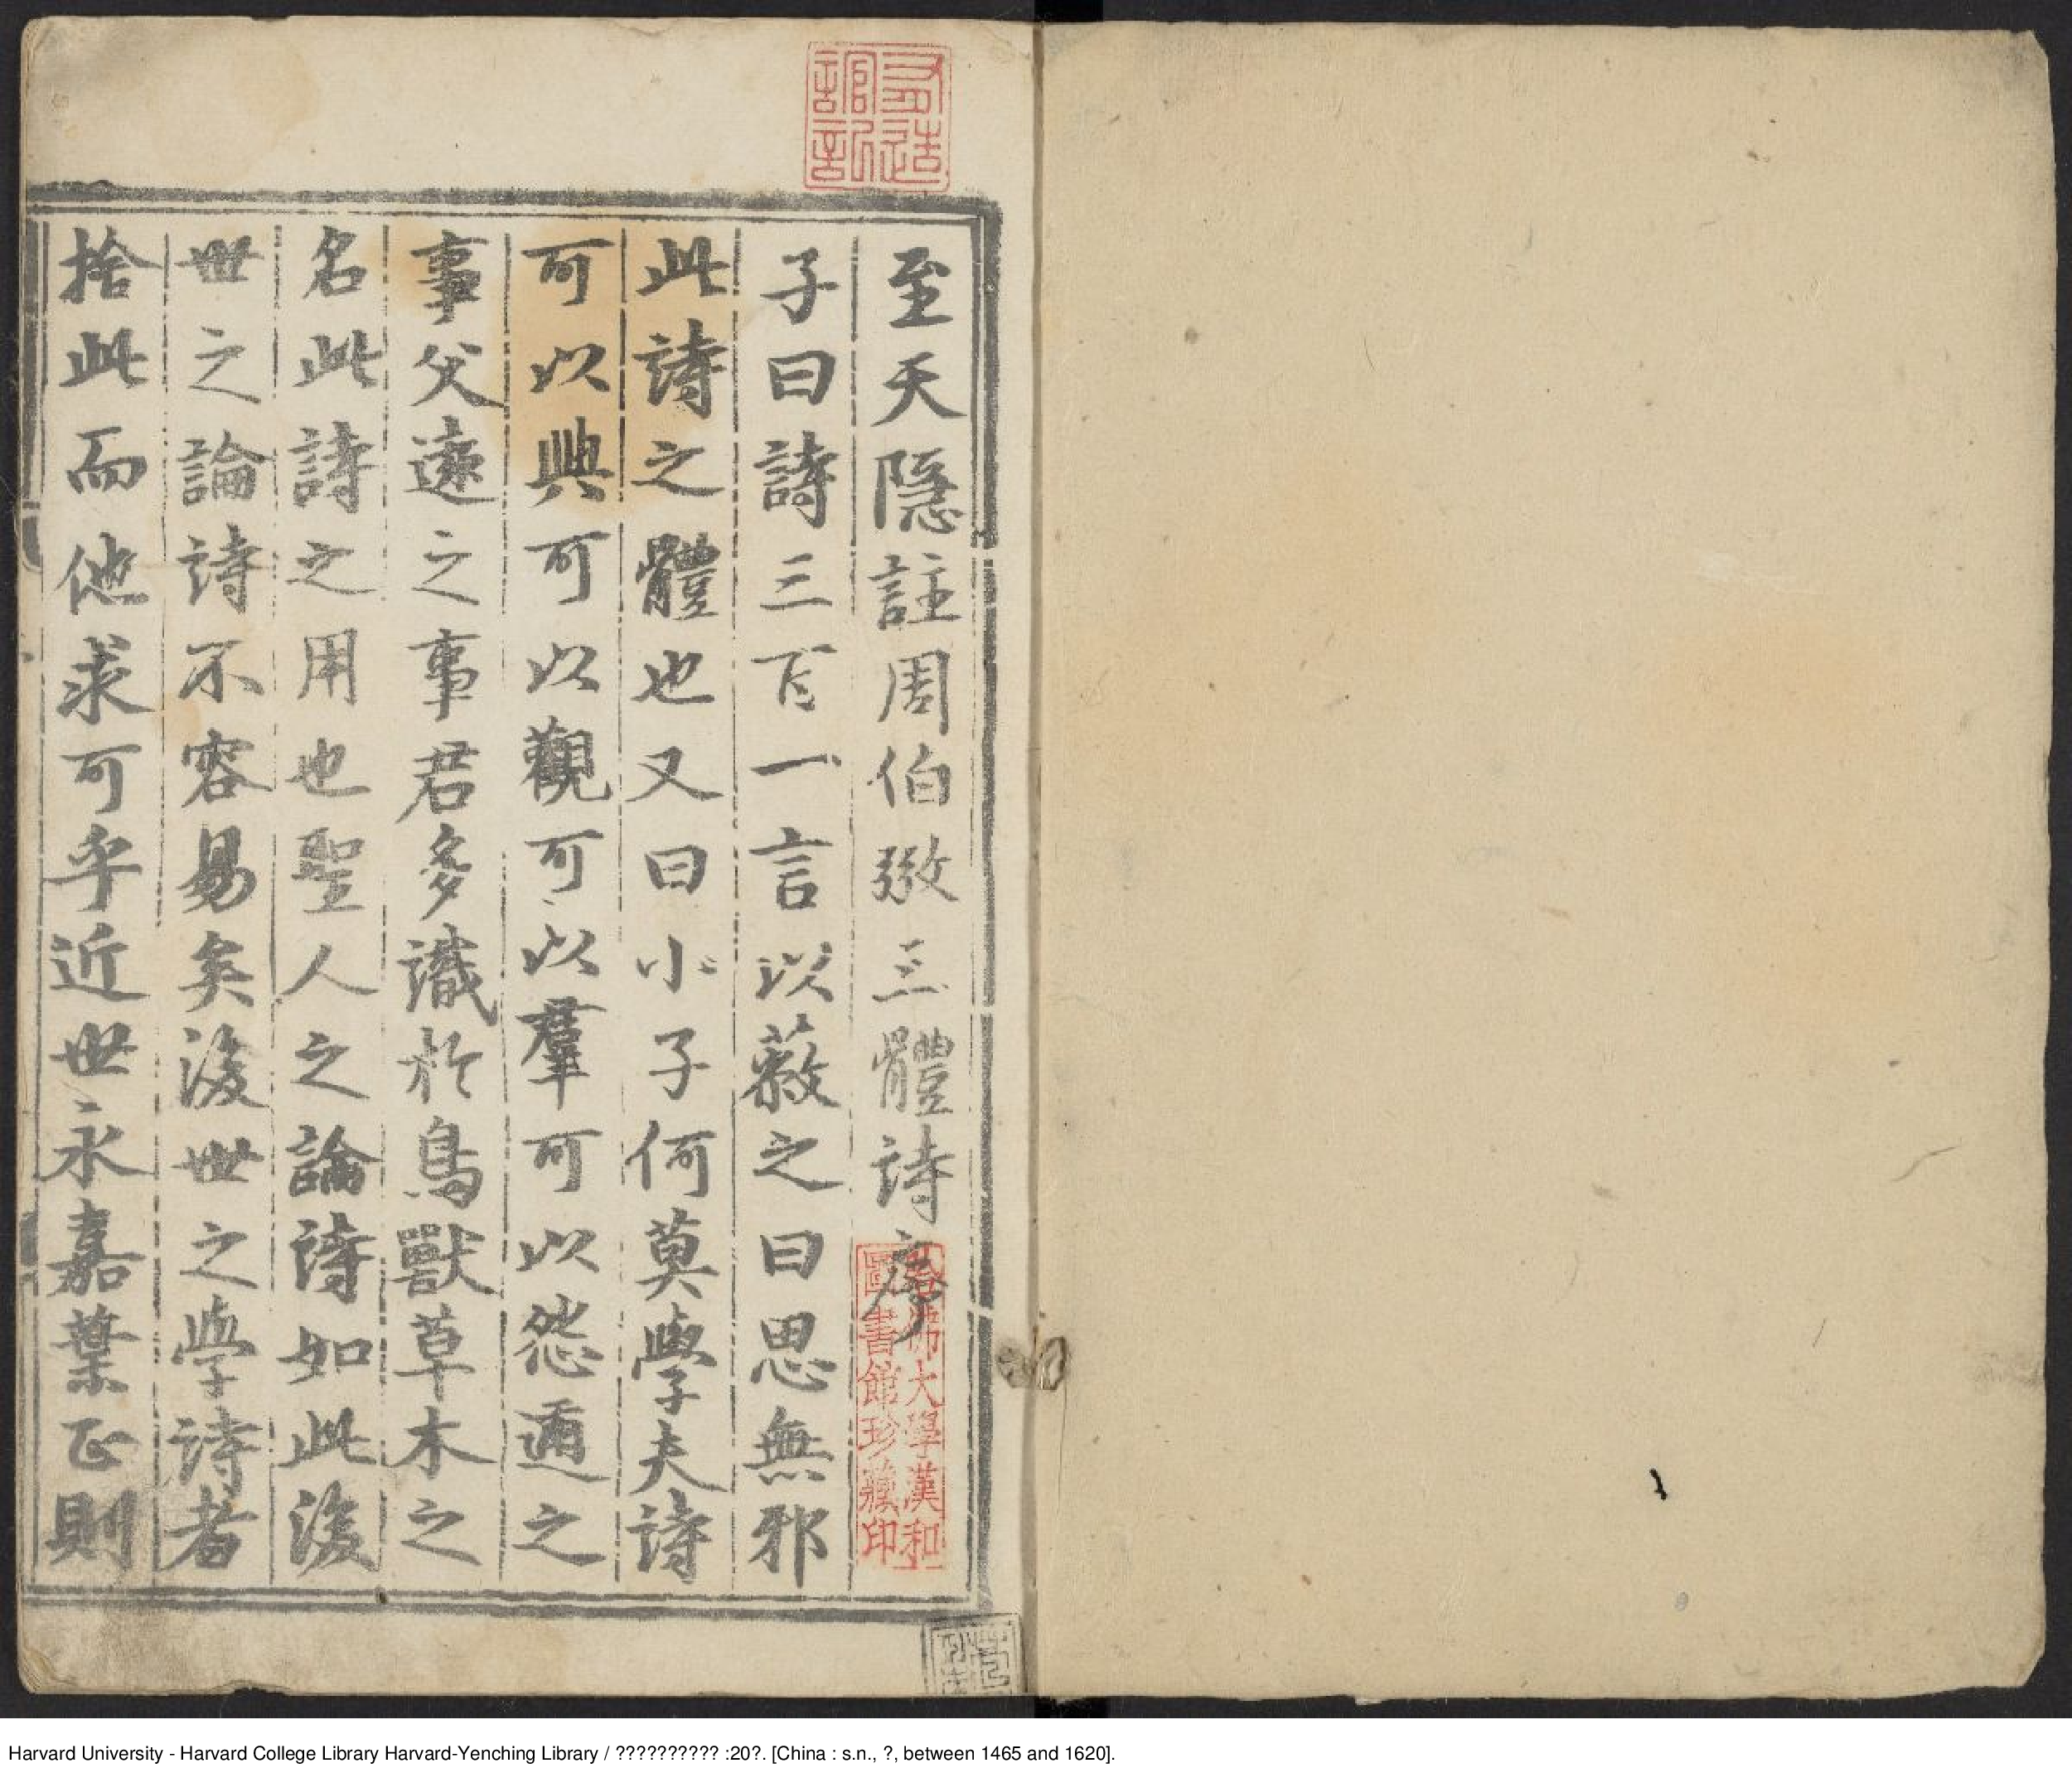 至天隱註周伯弜三體詩序
子曰詩三百一言以蔽之曰思無邪
此詩之體也又曰小子何莫學夫詩
可以興可以觀可以羣可以怨邇之
事父遠之事君多識於鳥獸草木之
名此詩之用也聖人之論詩如此後
世之論詩不容易矣後世之學詩者
捨此而他求可乎近世永嘉葉正則
哈佛大學漢和
圖書館珍藏印
Harvard University - Harvard College Library Harvard-Yenching Library / ?????????? :20?. [China : s.n., ?, between 1465 and 1620].